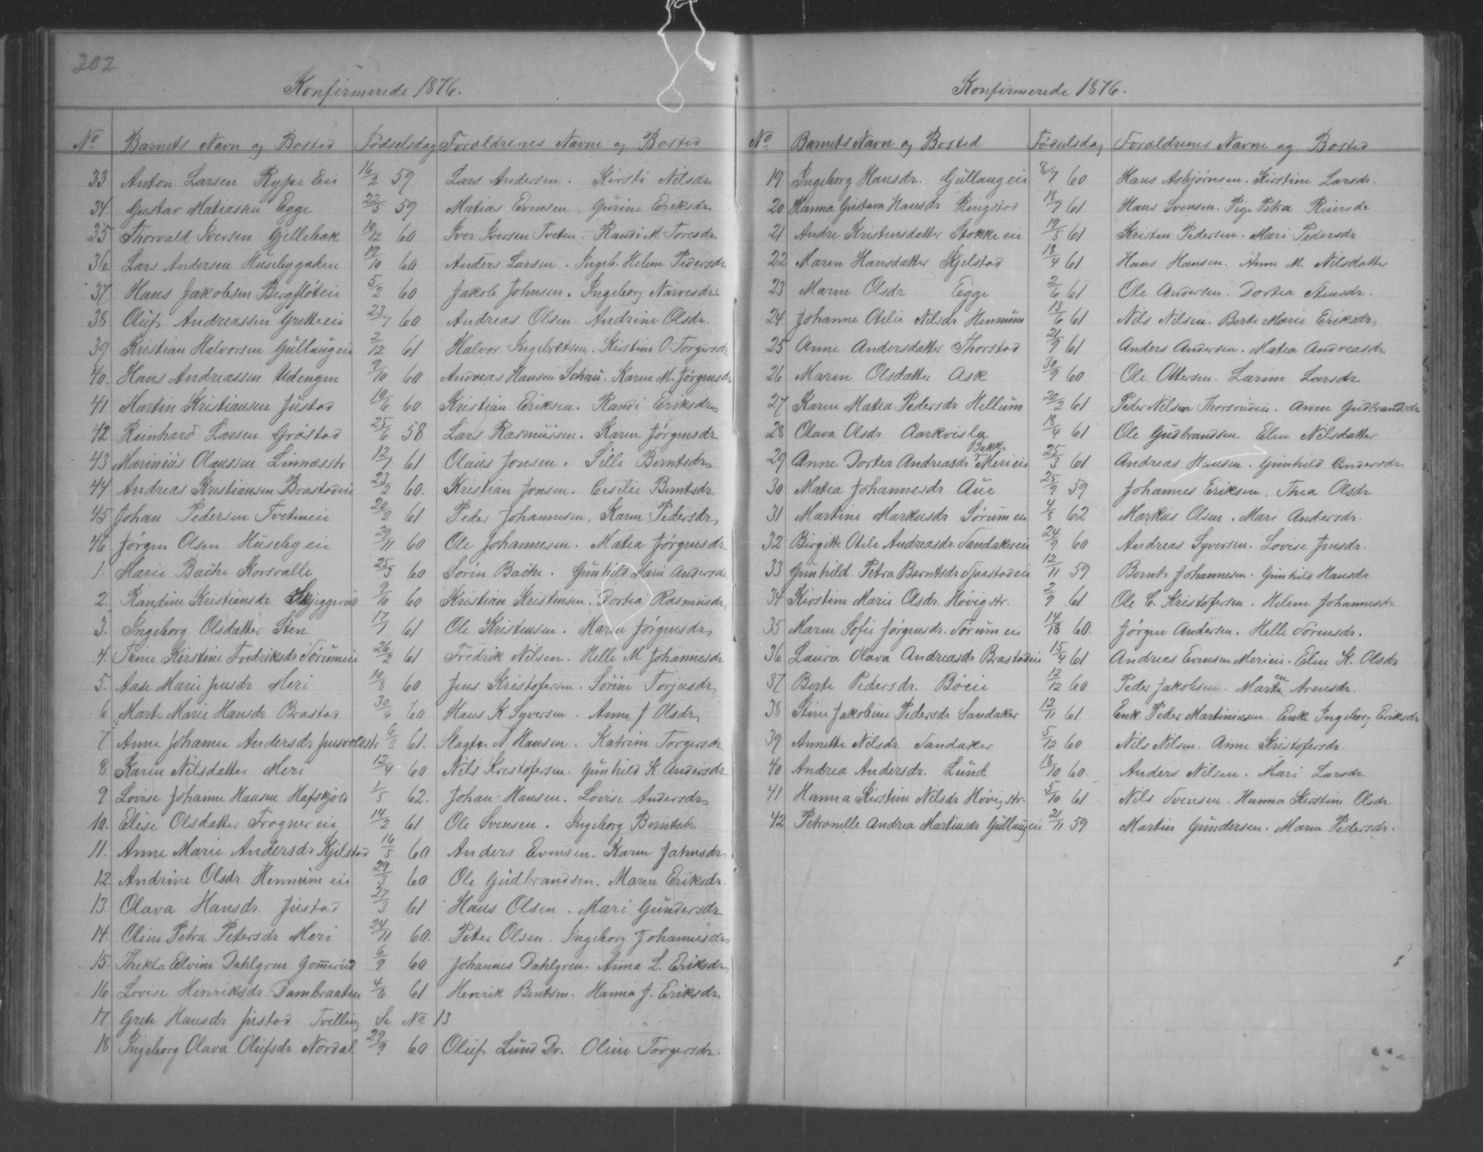 202
Konfirmerede 1876.
No Barnets Navn og Bosted Fødselsdag Forældrenes Navne og Bosted
33 Anton Larsen Rype Eie 16/2 59 Lars Andersen. Kirsti Nilsdr
34. Gustav Matiassen Egge 59 Matias Evensen. Gurine Eriksdr
35 Thorvald Iversen Gellebæk 60 Iver Iversen Tveten. Randi M. Toresdr
36 Lars Andersen Husebygaden 60 Anders Larsen. Ingeb. Helene Pedersdr
37 Hans Jakobsen Bergfløteie 5/2 60 Jakob Johnsen. Ingeborg Narvesdr
38 Oluf Andreassen Gretteeie 23/7 60 Andreas Olsen. Andrine Olsdr.
39 Kristian Halvorsen Gullaugeie 2/12 61 Halvor Ingebretsen. Kirstine O. Torgersdr
40. Hans Andreassen Udengen 9/10 60 Andreas Hansen Schau. Karen M. Jørgensdr
41 Martin Kristiansen Justad 19/6 60 Kristian Eriksen. Randi Eriksdr
42 Reinhard Larsen Grøstad 25/6 58 Lars Rasmussen. Karen Jørgensdr
43 Marinius Olaussen Linnæsstr 12/1 61 Olaus Jonsen. Sille Berntsdr
44 Andreas Kristiansen Brastadeie 23/2 60. Kristian Jonsen. Cecilie Berntsdr
45 Johan Pedersen Tveteneie 61 Peder Johannesen. Karen Pedersdr
46 Jørgen Olsen Huseby eie 29/11 60 Ole Johannesen. Matea Jørgensdr
1. Marie Bache Korsvalle 25/3 60 Søren Bache. Gunhild Marie Andersdr
2 Randine Kristiansdr Skjeggerud 2/10 60 Kristian Kristensen. Dortea Rasmusdr
3. Ingeborg Olsdatter Sten 61 Ole Kristensen. Maren Jørgensdr
4. Trine Kirstine Fredriksdr Sørumeie 26/2 61 Fredrik Nilsen. Helle M Johannesdr
5. Aase Marie Jensdr Meri 19/8 60 Jens Kristofersen. Sørine Torjusdr
6 Marte Marie Hansdr Brastad 30/6 60 Hans K Syversen. Anne J Olsdr
7 Anne Johanne Andersdr Jensvoldstr 6/3 61. Slagter A Hansen. Katrine Torgersdr
8 Karen Nilsdatter Meri 12/4 60 Nils Kristofersen. Gunhild K Andersdr
9 Lovise Johanne Hansen Hafskjold 1/5 62. Johan Hansen. Lovise Andersdr
10. Elise Olsdatter Frogner eie 14/2 61 Ole Svensen. Ingeborg Berntsdr
11. Anne Marie Andersdr Kjelstad 14/5 60 Anders Evensen. Karen Jahnsdr
12. Andrine Olsdr. Hennum eie 29/3 60 Ole Gudbrandsen. Maren Eriksdr.
13. Olava Hansdr Justad 27/3 61 Hans Olsen. Mari Gundersdr
14. Oline Petra Petersdr Meri 24/11 60. Peter Olsen. Ingeborg Johannesdr
15. Thekla Edvine Dahlgren Gomerud 6/9 60 Johannes Dahlgren. Anna L. Eriksdr
16 Lovise Henriksdr Dambraaten 4/6 61 Henrik Berntsen. Hanna J. Eriksdr
17 Grete Hansdr Justad Tvilling Se No 13
18 Ingeborg Olava Olufsdr Nordal 29/9 60 Oluf Lund Dr. Oline Torgersdr.
Konfirmerede 1876.
No. Barnets Navn og Bosted Fødselsdag Forældrenes Navne og Bosted
19 Ingeborg Hansdr. Gullaug eie 8/7 60 Hans Asbjørnsen. Kirstine Larsdr.
20 Hanna Gustava Hansdr Ringstad 61 Hans Svensen. Pige Petra Reiersdr
21 Andre Kristensdatter Stokke eie 19/5 61 Kristen Pedersen. Mari Pedersdr
22 Maren Hansdatter Kjelstad 18/4 61 Hans Hansen. Anne M. Nilsdatter
23 Maren Olsdr Egge 2/6 61 Ole Andersen. Dortea Stensdr.
24. Johanne Otelie Nilsdr Hennum 13/6 61 Nils Nilsen. Berte Marie Eriksdr
25 Anne Andersdatter Thorstad 21/9 61 Anders Andersen. Matea Andreasdr
26 Maren Olsdatter Ask 30/9 60 Ole Ottersen. Larine Larsdr
27 Karen Matea Pedersdr Hellum 20/2 61 Peder Nilsen Thorsrudeie. Anne Gudbrandsdr
28 Olava Olsdr Aarkvisla 61 Ole Gudbrandsen. Elen Nilsdatter
29 Anne Dortea Andreasdr Bakke Merieie 25/3 61 Andreas Hansen. Gunhild Andersdr
30 Matea Johannesdr Aue 25/9 59 Johannes Eriksen. Thea Olsdr
31 Martine Markusdr Sørum eie 4/8 62 Markus Olsen. Mari Andersdr.
32 Birgitte Otilie Andreasdr. Sandakereie 24/9 60 Andreas Syversen. Lovise Jensdr.
33 Gunhild Petra Berntsdr Sjaastadeie 12/11 59 Bernt Johannesen. Gunhild Hansdr
34 Kirstine Marie Olsdr Høvigstr. 2/9 61 Ole C. Kristofersen. Helene Johannesdr
35 Maren Sofie Jørgensdr. Sørum eie 60. Jørgen Andersen. Helle Sørensdr.
36 Laura Olava Andreasdr Brastadeie 15/4 61 Andreas Evensen Merieie. Elen K. Olsdr
37 Berte Pedersdr. Böeie 12/12 60 Peder Jakobsen. Marten Arnesdr.
38 Stine Jakobine Pedersdr Sandaker 12/11 61 Enk. Peder Martiniusen. Enke Ingeborg Eriksdr
39 Annette Nilsdr. Sandaker 5/12 60 Nils Nilsen. Anne Kristofersdr.
40 Andrea Andersdr. Lund 18/10 60. Anders Nilsen. Mari Larsdr
41 Hanna Kirstine Nilsdr Høvigstr. 5/10 61 Nils Svensen. Hanna Kirstine Olsdr.
42 Petronelle Andrea Martinsdr Gullaugeie 21/11 59 Martin Gundersen. Maren Pedersdr.